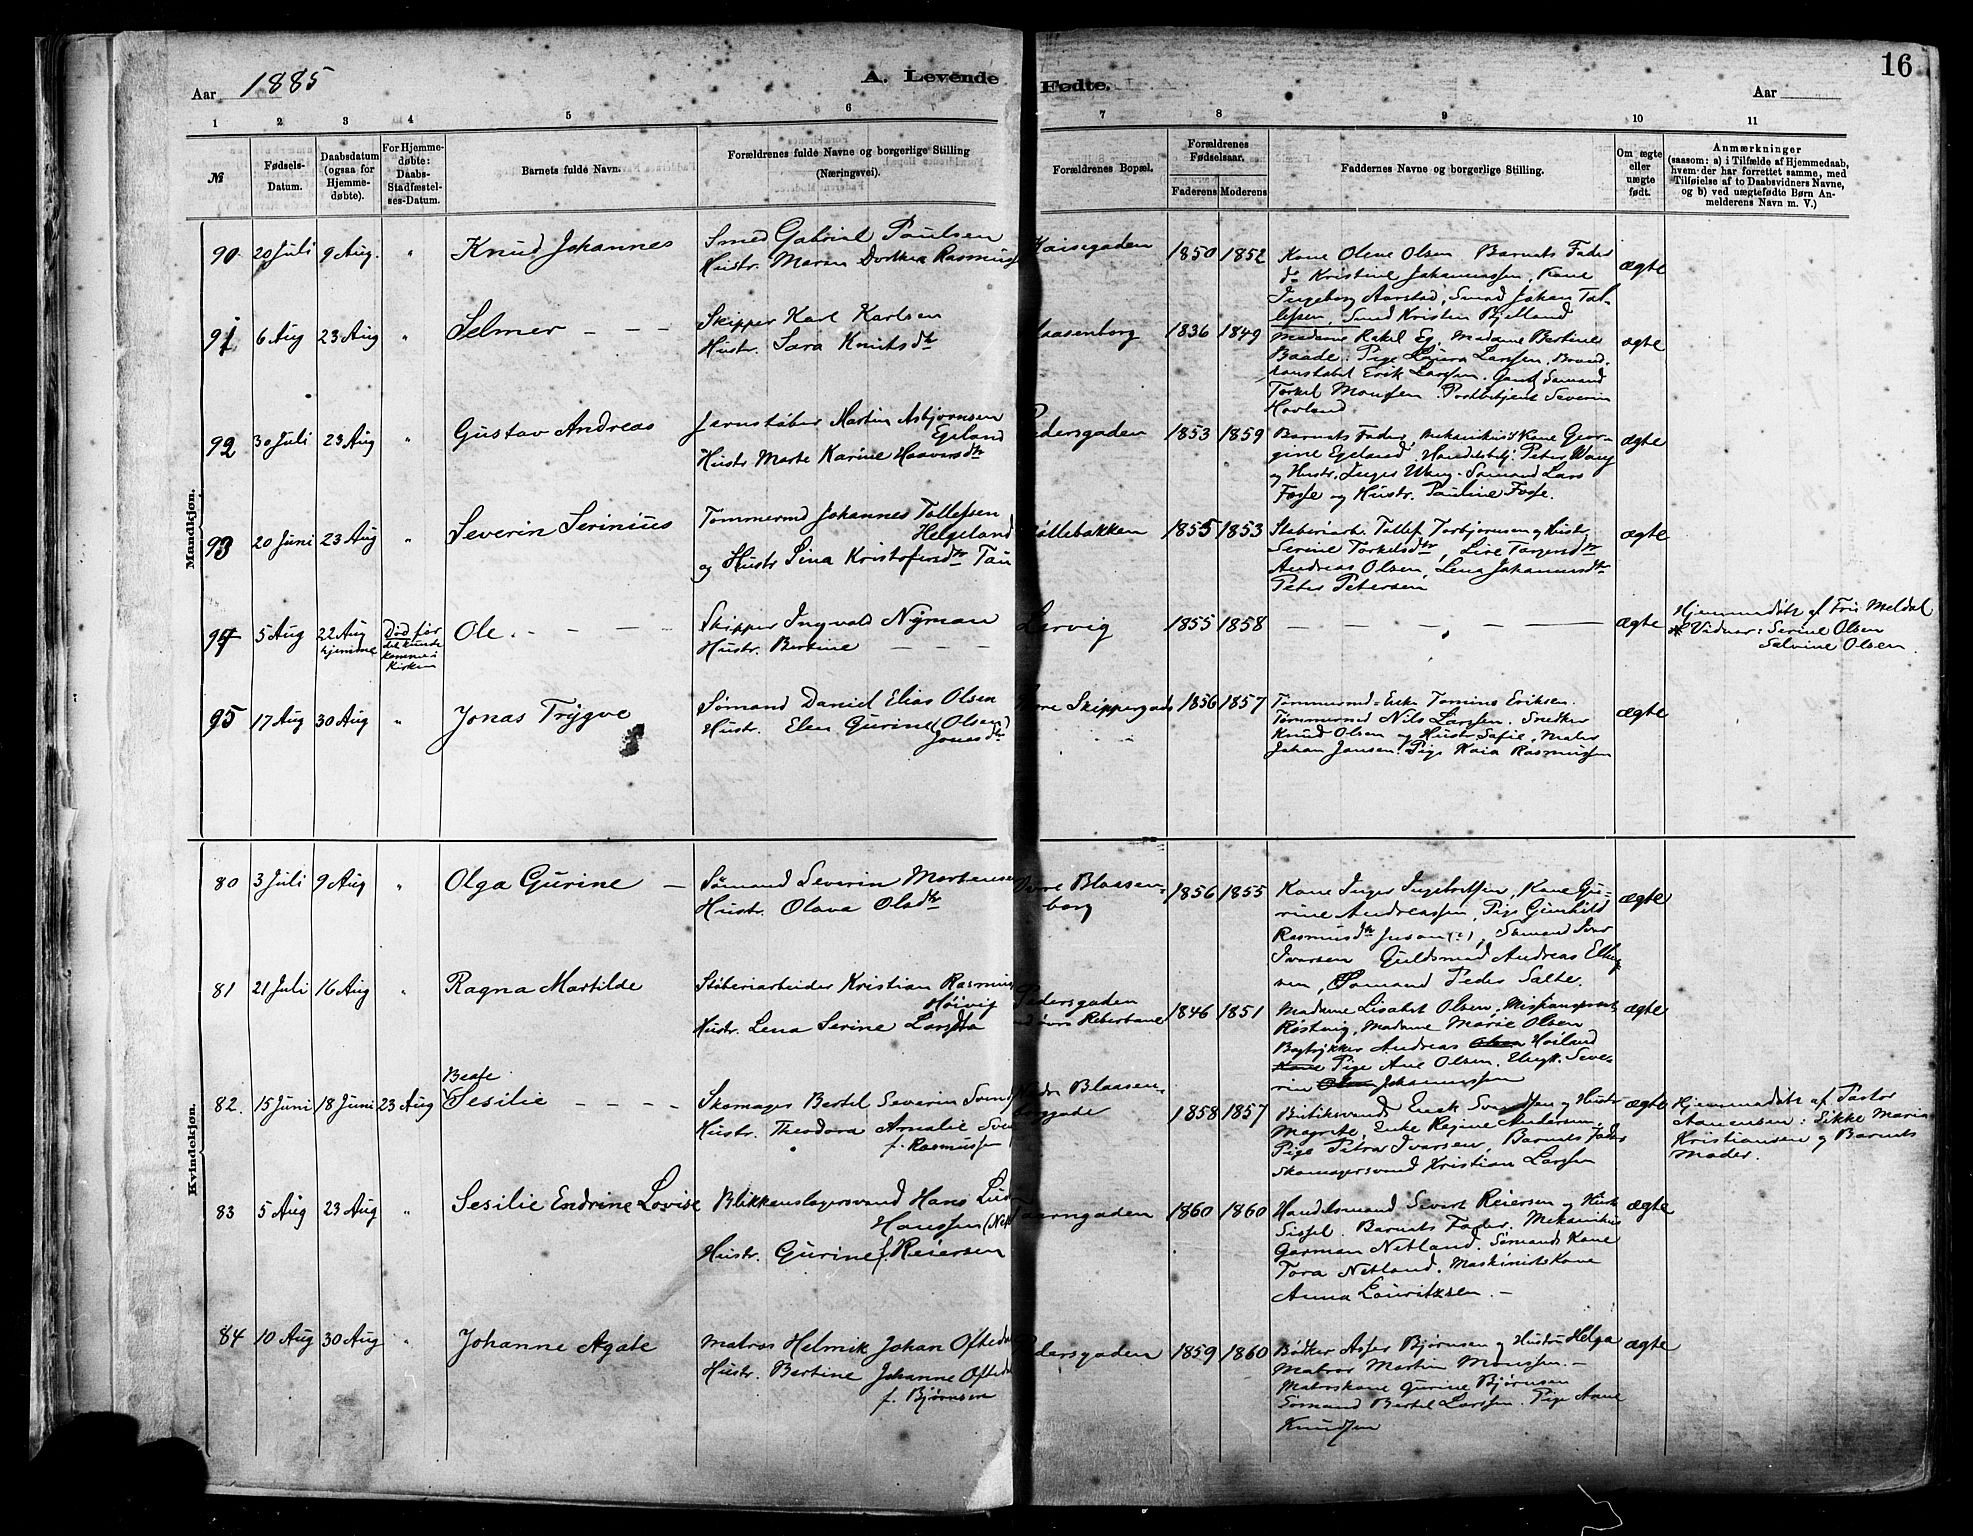 16
Aar 1885
A. Levende Fødte.
Aar
1 2 3 4 5 6 7 8 9 10 11
№
Fødsels-
Datum.
Daabsdatum
(ogsaa for
Hjemme-
døbte).
For Hjemme-
døbte:
Daabs-
Stadfæstel-
ses-Datum.
Barnets fulde Navn.
Forældrenes fulde Navne og borgerlige Stilling
(Næringsvei).
Forældrenes Bopæl.
Forældrenes
Fødselsaar.
Faderens Moderens
Faddernes Navne og borgerlige Stilling.
Om ægte
eller
uægte
født.
Anmærkninger
(saasom: a) i Tilfælde af Hjemmedaab,
hvem der har forrettet samme, med
Tilføielse af to Daabsvidners Navne,
og b) ved uægtefødte Børn An-
melderens Navn m. V.)
Mandkjøn.
90 20 Juli 9 Aug. "
Knud Johannes
Smed Gabriel Paulsen
Hustr. Maren Dorthea Rasmus
Kaisegaden
1850 1852
Kone Olene Olsen Barnets Fader
do Kristine Johannessen, Kone
Ingeborg Aarstad, Smed Johan Tol-
lefsen, Smed Kristen Bjelland
ægte
91 6 Aug 23 Aug "
Selmer
Skipper Karl Karlsen
Hustr. Sara Knutsdtr
laasenborg
1836 1849
Madame Rakel Eg, Madame Bertine
Baade, Pige Laura Larssen, Brand-
konstabel Erik Larssen. Gant Sømand
Torkel Monssen. Postbetjent Severin
Hovland
ægte
92 30 Juli 23 Aug "
Gustav Andreas
Jernstøber Martin Asbjørnsen
Egeland
Hustr Marte Karine Haavarsdtr
Pedersgaden
1853 1859
Barnets Fader, Mekanikus Kone Geor-
gine Egeland. Handelsbetj. Peter Wang
og Hustr. Inger Wang. Sømand Lars
Fosse og Hustr. Pauline Fosse.
ægte
93 20 Juni 23 Aug "
Severin Serinius
Tømmermd Johannes Tollefsen
Helgeland
og Hustr Sina Kristofersdtr Tau
øllebakken
1855 1853
Støberiarb. Tollef Torbjørnsen og Hustr
Serine Torkelsdtr, Live Torgersdtr
Andreas Olsen, Lena Johannesdtr
Peter Petersen
ægte
94 5 Aug 22 Aug
hjemme
Død før
det kunde
komme i
Kirken
Ole
Skipper Ingvald Nyman
Hustr. Bertine
Lervig
1855 1858
ægte
Hjemmedøbt af Fru Meldal
Vidner: Serine Olsen
Salvine Olsen.
95 17 Aug 30 Aug "
Jonas Trygve
Sømand Daniel Elias Olsen
Hustr. Elen Gurine (Olsen)
Jonasdtr
øvre Skippergade
1856 1857
Tømmermd-Enke Tomine Eriksen.
Tømmermd Nils Larssen. Snedker
Knud Olsen og Hustr Sofie, Maler
Johan Jansen. Pige Kaia Rasmussen
ægte
Kvindekjøn.
80 3 Juli 9 Aug "
Olga Gurine
Sømand Severin Mortensen
Hustr. Olava Olsdtr
Øvre Blaasen-
borg
1856 1855
Kone Inger Ingebretsen, Kone Gu-
rine Andreassen, Pige Gunhild
Rasmusdtr Juson(?), Sømand Iver
Iversen Guldsmed Andreas Elling-
sen, Sømand Peder Salte.
ægte
81 21 Juli 16 Aug "
Ragna Martilde
Støberiarbeider Kristian Rasmus
Høivig
Hustr. Lena Serine Larsdtr
Pedersgaden
øvre Reberbane
1846 1851
Madame Lisabet Olsen, Missionsprest
Røstvig, Madame Marie Olsen
Bogtrykker Andreas Olsen Høiland
Kone Pige Ane Olsen. Ungk. Seve-
rin Olsen Johannessen
ægte
82. 15 Juni 18 Juni 23 Aug
Beate
Sesilie
Skomager Bertel Severin Svends
Hustr. Theodora Amalie Sven
f. Rasmussen
Nedr Blaasen-
borggade
1858 1857
Butiksvend Enok Svendsen og Hustr
Magrete, Enke Regine Andersen
Pige Petra Iversen, Barnets Fader
Skomagersvend Kristian Larsen
ægte
Hjemmedøbt af Pastor
Aanensen: Sikke Marie
Kristiansen og Barnets
Moder.
83 5 Aug 23 Aug "
Sesilie Endrine Lovise
Blikkenslagersvend Hans Lud
Hanssen (Netl
Hustr. Gurine f. Reiersen
aarngaden
1860 1860
Handelsmand Sivert Reiersen og Hustr
Sissel. Barnets Fader. Mekanikus
Gorman Netland. Sømands Kone
Tora Netland. Maskinistkone
Anna Lauritzsen.
ægte
84 10 Aug 30 Aug "
Johanne Agate
Matros Helmik Johan Oftedal
Hustr. Bertine Johanne Ofteda
f. Bjørnsen
Pedersgaden
1859 1860
Bødker Asser Bjørnsen og Hustru Helga
Matros Martin Monssen.
Matroskone Gurine Bjørnsen
Sømand Bertel Larssen. Pige Aane
Knudsen
ægte